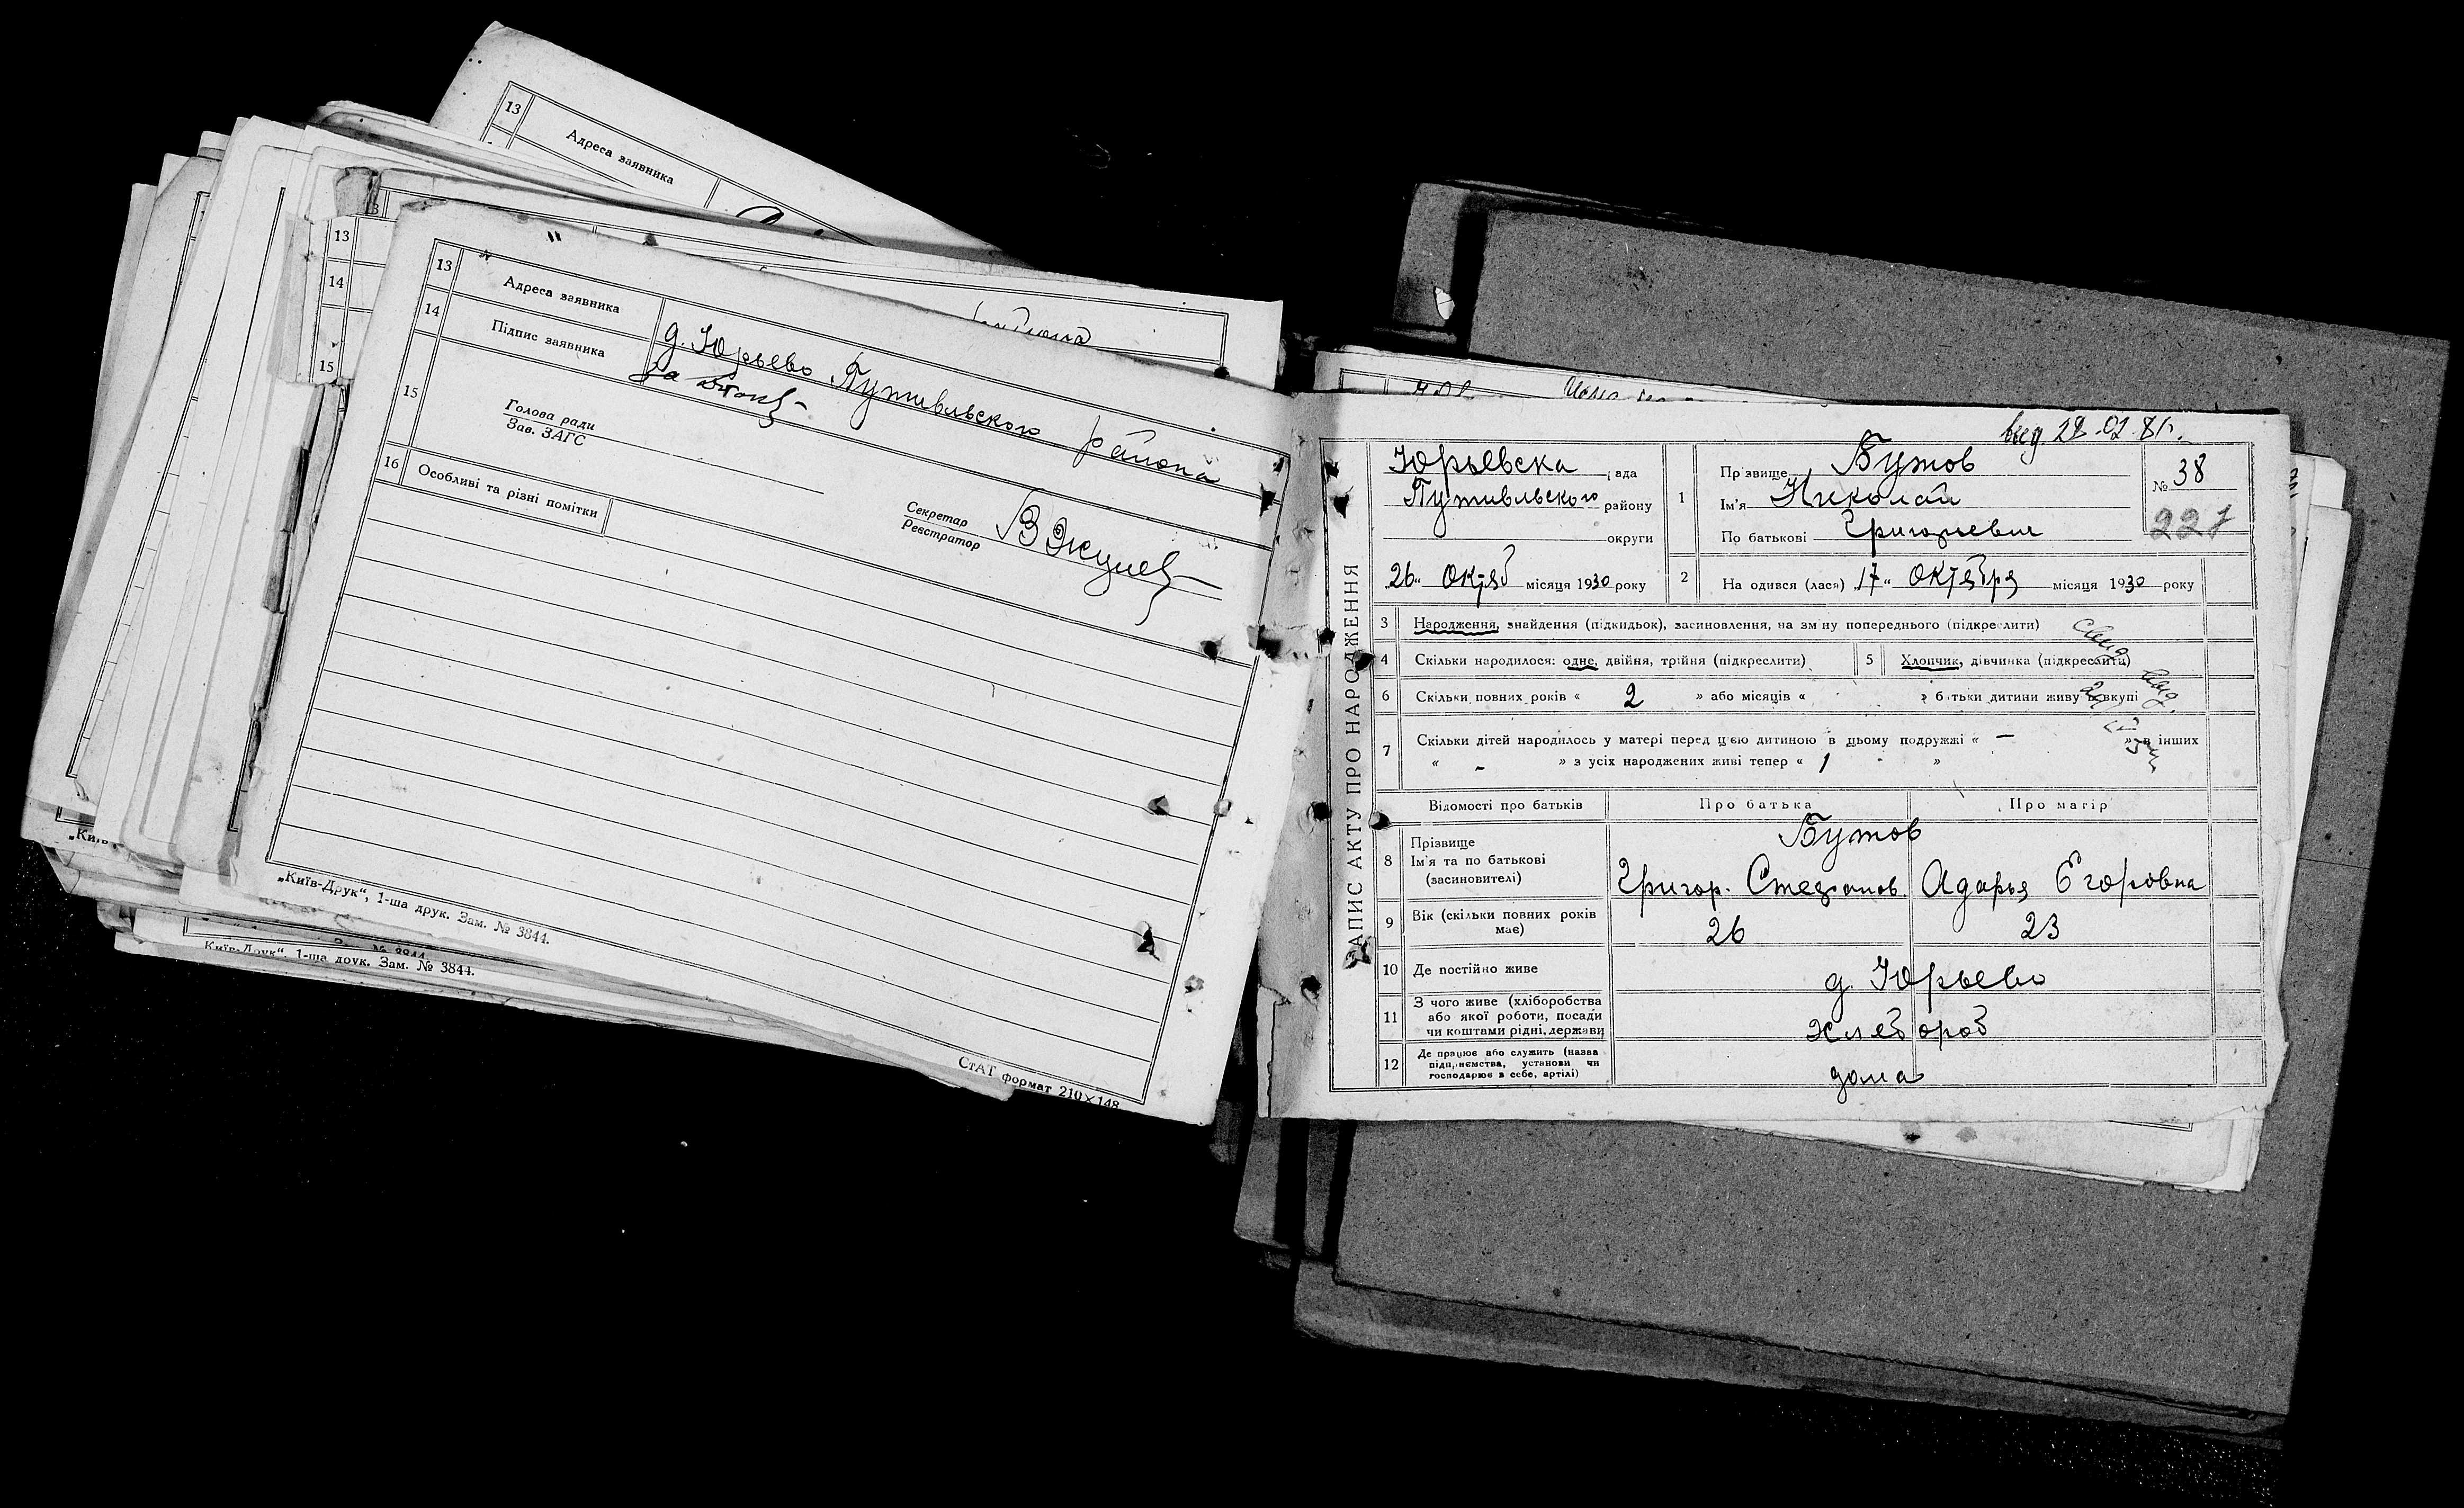 13
Адреса заявника
13
13
14
15
13
Адреса заявника
д. Юрьево Путивльского района
14
Підпис заявника
за
15
Голова ради
Зав. ЗАГС
Секретар
Реєстратор
16
Особливі та різні помітки
„Київ-Друк“, 1-ша друк. Зам. № 3844.
СтАТ формат 210×148
Київ-Друк“, 1-ша друк. Зам. № 3844.
ЗАПИС АКТУ ПРО НАРОДЖЕННЯ
28.02.81г.
Юрьевска рада
Путивльского району
округи
26 „ Октяб місяця 1930 року
1
Прізвище Бутов
Ім'я Николай
По батькові Григорьевич
№ 38
227
2
Народився (лася) „17“ Октября місяця 1930 року
3
Народження, знайдення (підкидьок), засиновлення, на зміну попереднього (підкреслити)
4
Скільки народилося: одне, двійня, трійня (підкреслити)
5
Хлопчик, дівчинка (підкреслити)
6
Скільки повних років « 2 » або місяців « » батьки дитини живуть вкупі
7
Скільки дітей народилось у матері перед цією дитиною в цьому подружжі « – » в інших
« – » з усіх народжених живі тепер « 1 »
Відомості про батьків
Про батька
Про матір
8
Прізвище
Ім'я та по батькові
(засиновителі)
Бутов
Григор. Степанов.
Адарья Егоровна
9
Вік (скільки повних років має)
26
23
10
Де постійно живе
д. Юрьево
11
З чого живе (хліборобства
або якої роботи, посади
чи коштами рідні, держави
хлебороб
12
Де працює або служить (назва
підприємства, установи чи
господарює в себе, артілі)
дома